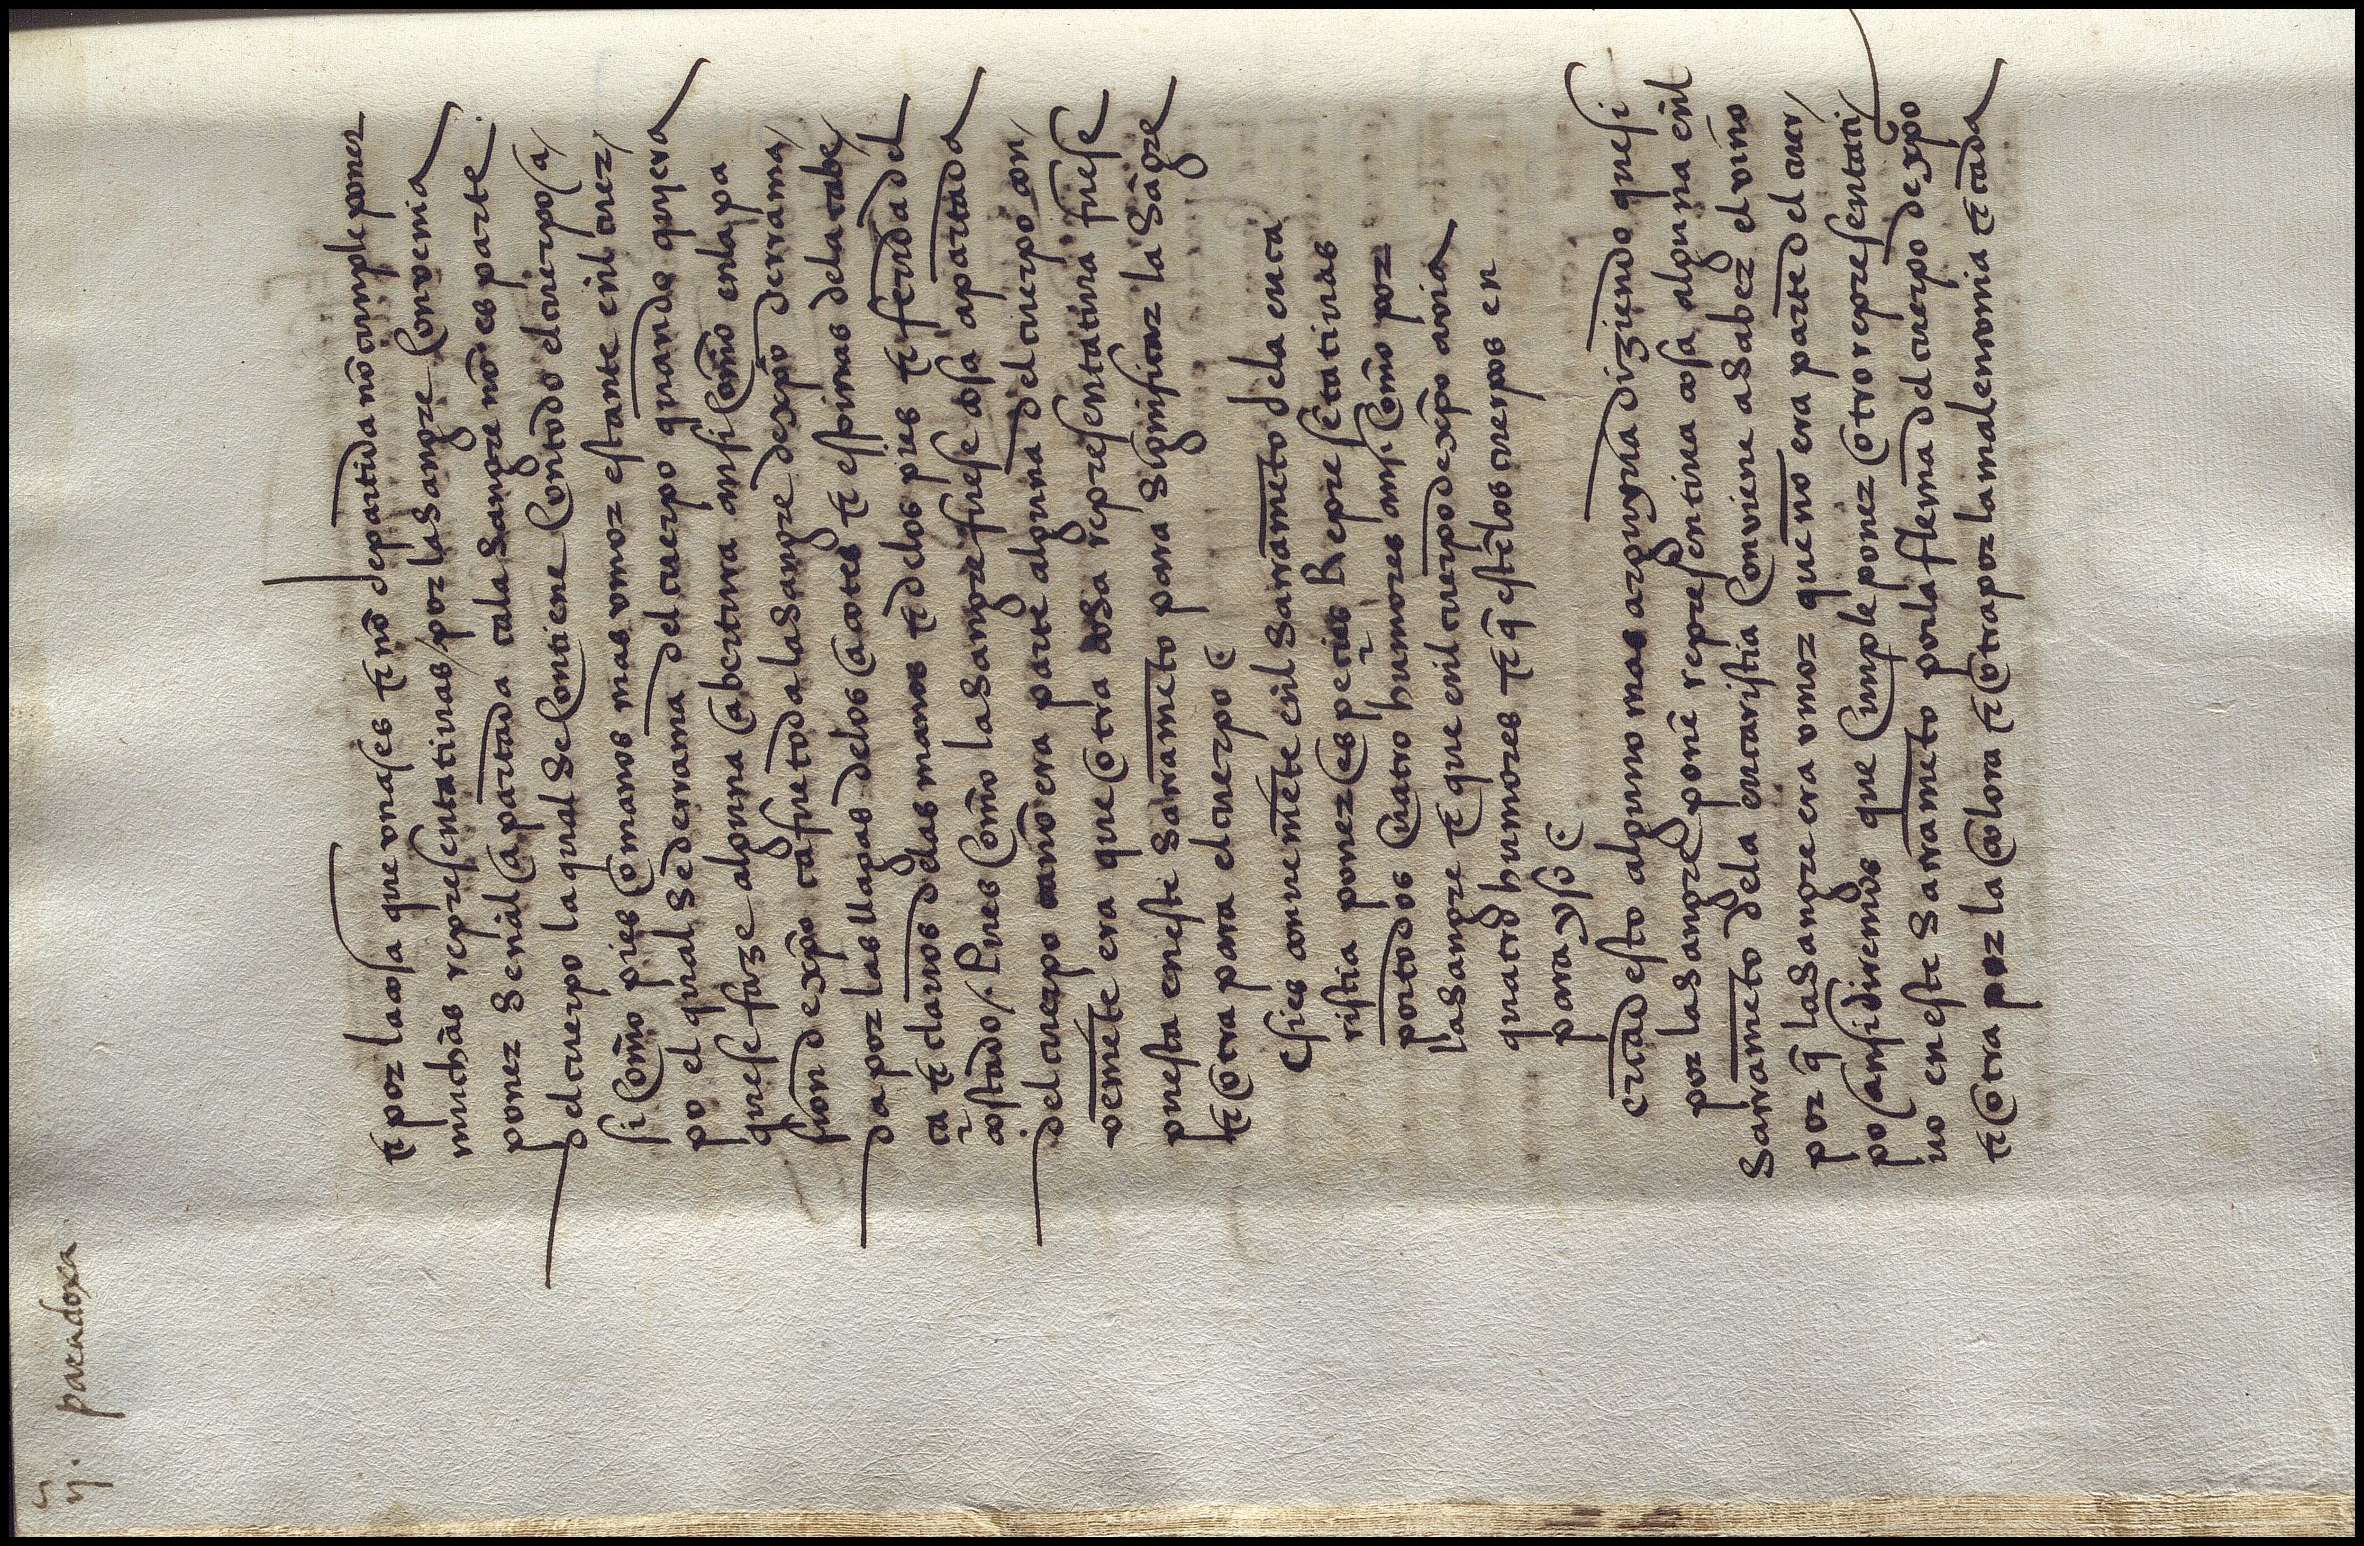 ij. paradoxa
τ por la cosa que vna es τ nõ departida nõ cumple poner
muchas representatiuas / por la sangre Conuenia
poner señal Apartada ca la sangre nõ es parte
del cuerpo la qual se Contiene Con todo el cuerpo / A
si Como pies o manos mas vmor estante en̄l cuer /
po el qual se derrama del cuerpo quando quyera
que se faze alguna Abertura ansi Como en la pa
sion de xp̄o ca fue toda la sangre de xp̄o derrama /
da por las llagas delos Açotes τ espinas dela cabe /
ça τ clauos delas manos τ delos pies τ ferida del
costado /. Pues Como la sangre fuese cosa apartada
del cuerpo nõ era parte alguna del cuerpo con /
veniẽte era que otra cosa representatiua fuese
puesta en este sacramẽto para significar la sãgre
τ otra para el cuerpo
ristia poner espeçies Represẽtatiuas
por todos quatro humores ansi Como por
la sangre τ que en̄l cuerpo de xp̄o auia
quatro humores τ q̄ estẽ los cuerpos en
parayso
esto alguno mas arguyra diziendo que si
por la sangre ponẽ representiua cosa alguna en̄l
Sacramẽto dela eucaristia Conviene a saber el vino
por q̄ la sangre era vmor que nõ era parte del cuer /
po / ansi diremos que Cumple poner otro representati /
uo en este sacramẽto por la flema del cuerpo de xp̄o
τ otra por la Colora τ otra por la malenconia τ cada